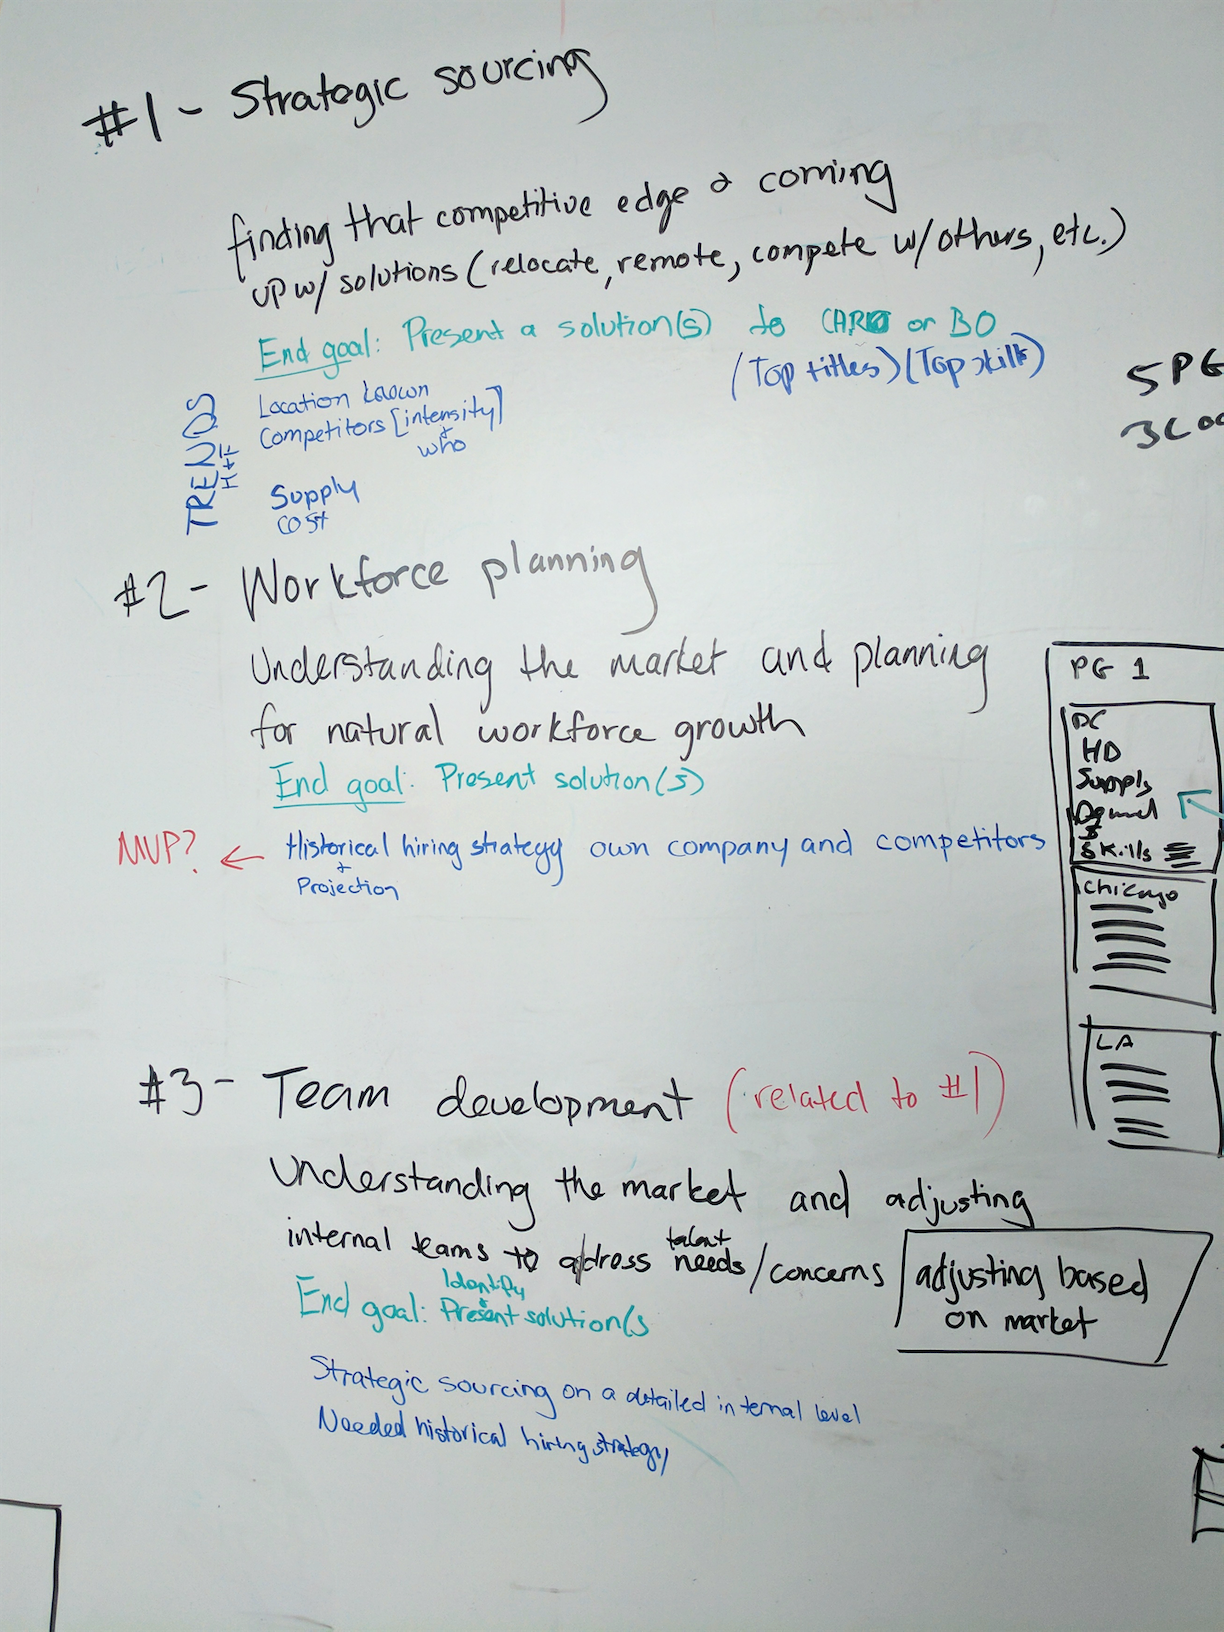 #1 - Strategic sourcing
finding that competitive edge & coming
up w/ solutions (relocate, remote, compete w/ others, etc.)
End goal: Present a solution(s) to or BO
(Top titles) (Top skills)
TRENDS
Location known
Competitors [intensity]
+
who
Supply
cost
5 PG
#2 - Workforce planning
Understanding the market and planning
for natural workforce growth
End goal: Present solution(s)
MVP? ← Historical hiring strategy own company and competitors
+
Projection
PG 1
DC
HD
Supply
Demand
5
Skills
Chicago
LA
#3 - Team development (related to #1)
Understanding the market and adjusting
internal teams to adross talent needs/concerns
adjusting based
on market
End goal: Identify + Present solution(s
Strategic sourcing on a detailed internal level
Needed historical hiring strategy